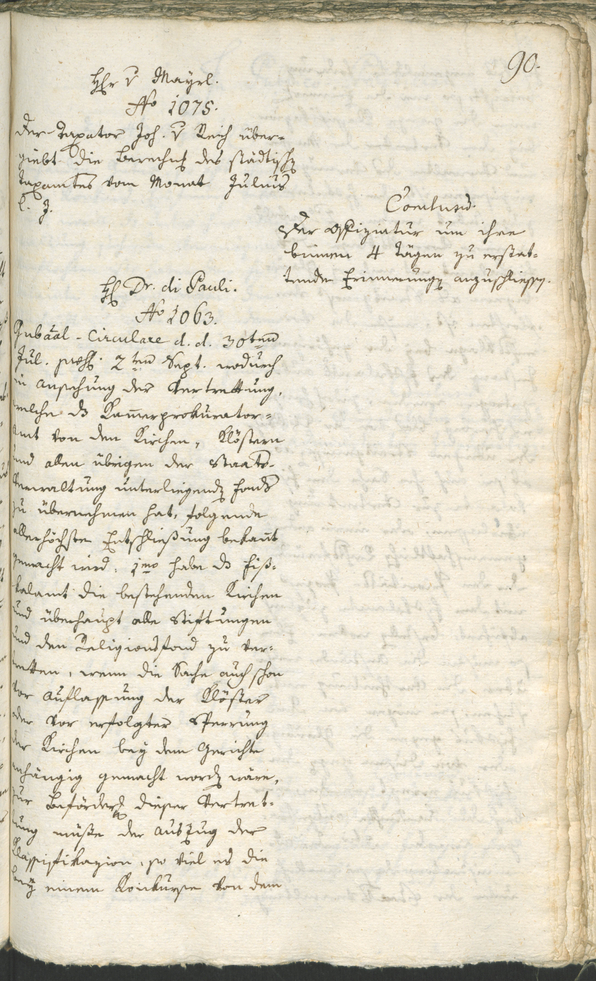 90.
Hr v Mayrl.
No 1075.
Der Taxator Joh. v Reich über-
giebt die Berechn des städtisch
Taxamtes vom Monat Julius
l. J.
Conclusum.
Der Offiziatur um ihre
binnen 4 Tägen zu erstat-
tende Erinnerung zuzuschließen.
H Dr. di Pauli.
No 1063.
Gubäal-Circulare d. d. 30ten
Jul. 2ten Sept. wodurch
in Ansehung der Vertrettung,
welche ds Kam̄erprokurator-
amt von den Kirchen, Klöstern
und allen übrigen der Staats-
verwaltung unterliegend Fonds
zu übernehmen hat, folgende
allerhöchste Entschließung bekannt
gemacht wird. 1mo habe ds Fis-
kalamt die bestehenden Kirchen
und überhaupt alle Stiftungen
und den Religionsfond zu ver-
tretten, wenn die Sache auch schon
vor Auflassung der Klöster
oder vor erfolgter Sperrung
der Kirchen bey dem Gerichte
anhängig gemacht word wäre,
zur Beförder dieser Vertret-
tung müße der Auszug der
Klassifikazion, so viel es die
bey einem Konkurse von dem